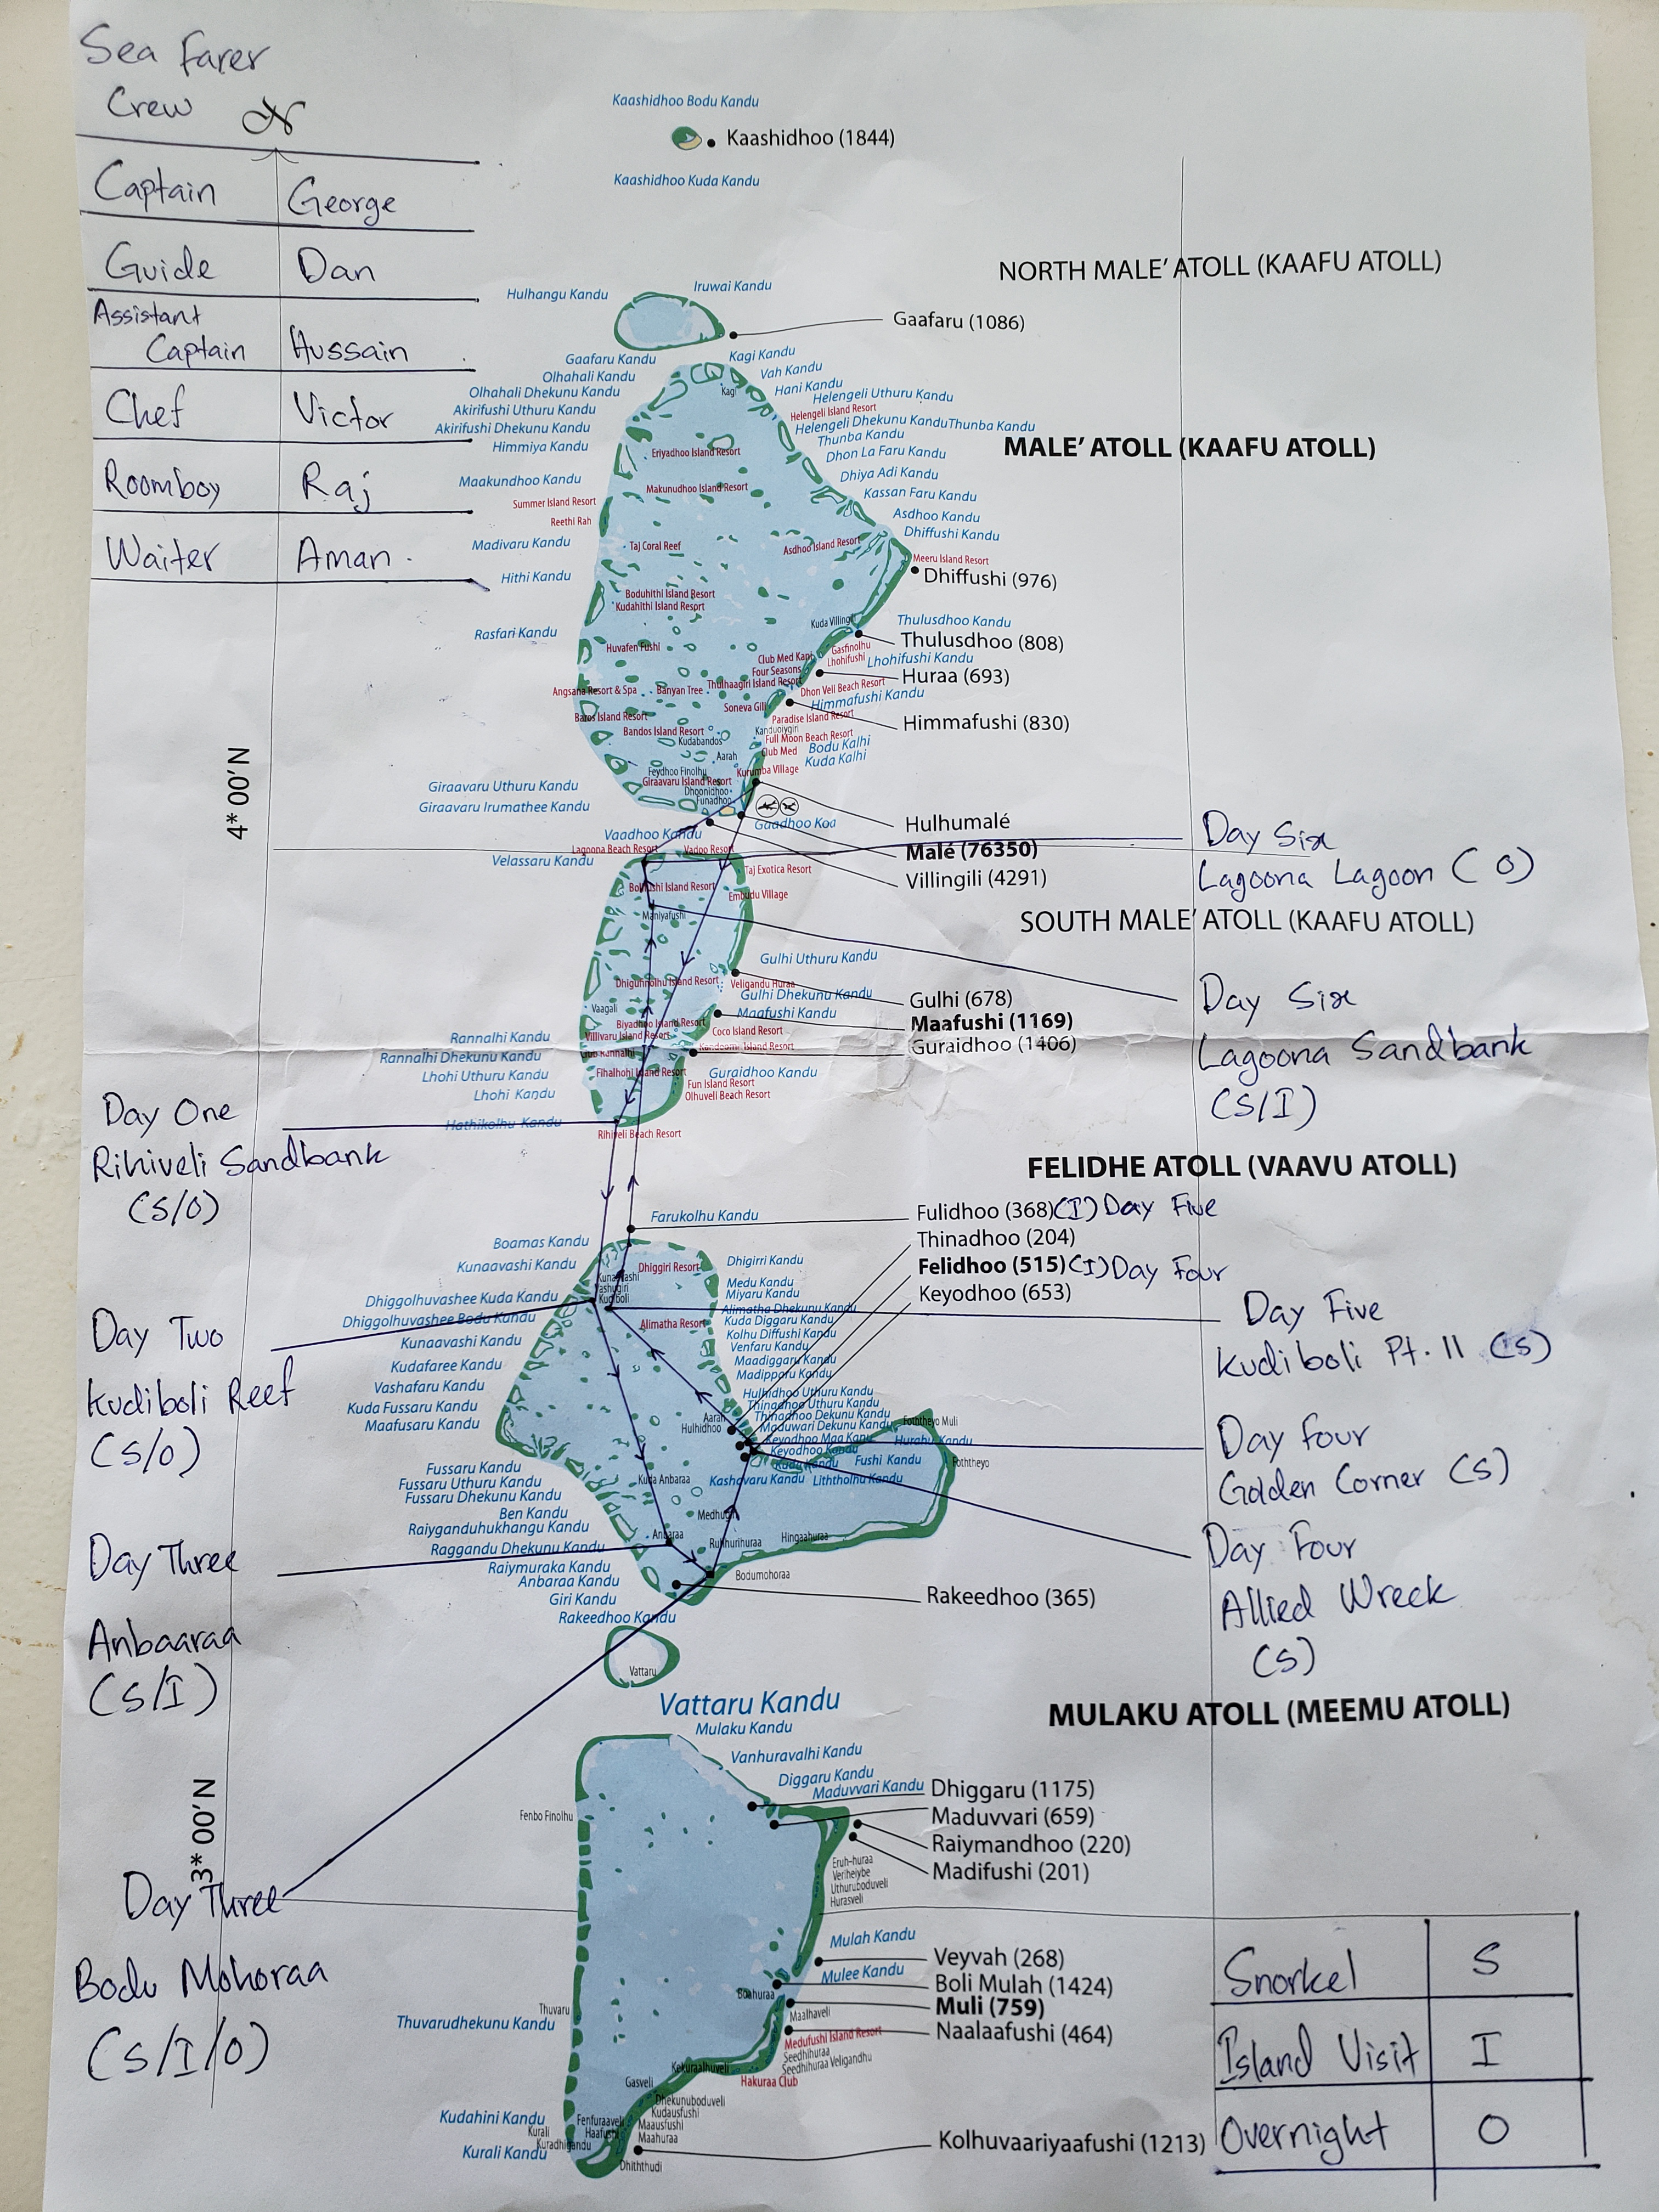 Sea Farer
Crew N
Captain George
Guide Dan
Assistant
Captain Hussain
Chef Victor
Roomboy Raj
Waiter Aman.
Kaashidhoo Bodu Kandu
Kaashidhoo (1844)
Kaashidhoo Kuda Kandu
NORTH MALE' ATOLL (KAAFU ATOLL)
Hulhangu Kandu
Iruwai Kandu
Gaafaru (1086)
Gaafaru Kandu
Kagi Kandu
Olhahali Kandu
Vah Kandu
Olhahali Dhekunu Kandu
Kagi
Hani Kandu
Helengeli Uthuru Kandu
Akirifushi Uthuru Kandu
Helengeli Island Resort
Akirifushi Dhekunu Kandu
Helengeli Dhekunu Kandu Thunba Kandu
Thunba Kandu
MALE' ATOLL (KAAFU ATOLL)
Himmiya Kandu
Eriyadhoo Island Resort
Dhon La Faru Kandu
Maakundhoo Kandu
Makunudhoo Island Resort
Dhiya Adi Kandu
Kassan Faru Kandu
Summer Island Resort
Reethi Rah
Asdhoo Kandu
Dhiffushi Kandu
Madivaru Kandu
Taj Coral Reef
Asdhoo Island Resort
Meeru Island Resort
Dhiffushi (976)
Hithi Kandu
Boduhithi Island Resort
Kudahithi Island Resort
Rasfari Kandu
Kuda Villingili
Thulusdhoo Kandu
Thulusdhoo (808)
Huvafen Fushi
Gasfinolhu
Lhohifushi
Lhohifushi Kandu
Club Med Kani
Four Seasons
Huraa (693)
Thulhaagiri Island Resort
Angsana Resort & Spa
Banyan Tree
Dhon Veli Beach Resort
Himmafushi Kandu
Soneva Gili
Baros Island Resort
Paradise Island Resort
Himmafushi (830)
Bandos Island Resort
Kudabandos
Full Moon Beach Resort
Club Med
Bodu Kalhi
Kuda Kalhi
Aarah
Feydhoo Finolhu
Kurumba Village
Giraavaru Island Resort
Giraavaru Uthuru Kandu
Dhoonidhoo
Funadhoo
Giraavaru Irumathee Kandu
4* 00' N
Gaadhoo Koa
Hulhumalé
Vaadhoo Kandu
Malé (76350)
Villingili (4291)
Day Six
Lagoona Lagoon (O)
Lagoona Beach Resort
Vadoo Resort
Velassaru Kandu
Taj Exotica Resort
Embudu Village
Maniyafushi
SOUTH MALE' ATOLL (KAAFU ATOLL)
Gulhi Uthuru Kandu
Veligandu Huraa
Gulhi Dhekunu Kandu
Gulhi (678)
Day Six
Lagoona Sandbank
(S/I)
Vaagali
Maafushi Kandu
Maafushi (1169)
Biyadhoo Island Resort
Villivaru Island Resort
Coco Island Resort
Guraidhoo (1406)
Rannalhi Kandu
Rannalhi Dhekunu Kandu
Fihalhohi Island Resort
Guraidhoo Kandu
Lhohi Uthuru Kandu
Fun Island Resort
Olhuveli Beach Resort
Lhohi Kandu
Hathikolhu Kandu
Rihiveli Beach Resort
Day One
Rihiveli Sandbank
(S/O)
FELIDHE ATOLL (VAAVU ATOLL)
Farukolhu Kandu
Fulidhoo (368)(I) Day Five
Thinadhoo (204)
Felidhoo (515)(I) Day Four
Keyodhoo (653)
Boamas Kandu
Kunaavashi Kandu
Dhiggiri Resort
Dhigirri Kandu
Medu Kandu
Miyaru Kandu
Dhiggolhuvashee Kuda Kandu
Dhiggolhuvashee Bodu Kandu
Alimatha Dhekunu Kandu
Kuda Diggaru Kandu
Alimatha Resort
Kolhu Diffushi Kandu
Venfaru Kandu
Maadiggaru Kandu
Madipparu Kandu
Day Two
Kudiboli Reef
(S/O)
Day Five
Kudiboli Pt. II (S)
Kunaavashi Kandu
Kudafaree Kandu
Vashafaru Kandu
Kuda Fussaru Kandu
Maafusaru Kandu
Hulhidhoo Uthuru Kandu
Thinadhoo Uthuru Kandu
Thinadhoo Dekunu Kandu
Maduwari Dekunu Kandu
Keyodhoo Maa Kandu
Keyodhoo Kandu
Aarah
Hulhidhoo
Foththeyo Muli
Hurahu Kandu
Fushi Kandu
Foththeyo
Kuda Kandu
Kashavaru Kandu
Liththolhu Kandu
Day Four
Golden Corner (S)
Day Four
Allied Wreck
(S)
Fussaru Kandu
Fussaru Uthuru Kandu
Fussaru Dhekunu Kandu
Ben Kandu
Raiyganduhukhangu Kandu
Raggandu Dhekunu Kandu
Raiymuraka Kandu
Anbaraa Kandu
Giri Kandu
Rakeedhoo Kandu
Kuda Anbaraa
Anbaraa
Hingaahuraa
Bodumohoraa
Rakeedhoo (365)
Day Three
Anbaaraa
(S/I)
Vattaru
Vattaru Kandu
MULAKU ATOLL (MEEMU ATOLL)
Mulaku Kandu
Vanhuravalhi Kandu
Diggaru Kandu
Maduvvari Kandu
Dhiggaru (1175)
Maduvvari (659)
Raiymandhoo (220)
Madifushi (201)
Fenbo Finolhu
Eruh-huraa
Veriheybe
Uthuruboduveli
Hurasveli
3* 00' N
Day Three
Bodu Mohoraa
(S/I/O)
Mulah Kandu
Veyvah (268)
Mulee Kandu
Boli Mulah (1424)
Boahuraa
Muli (759)
Maalhaveli
Naalaafushi (464)
Thuvaru
Thuvarudhekunu Kandu
Medufushi Island Resort
Seedhihuraa
Seedhihuraa Veligandhu
Kekuraalhuveli
Hakuraa Club
Gasveli
Dhekunuboduveli
Kudausfushi
Maausfushi
Maahuraa
Kudahini Kandu
Fenfuraaveli
Haafushi
Kurali
Kuradhigandu
Kurali Kandu
Dhiththudi
Kolhuvaariyaafushi (1213)
Snorkel S
Island Visit I
Overnight O